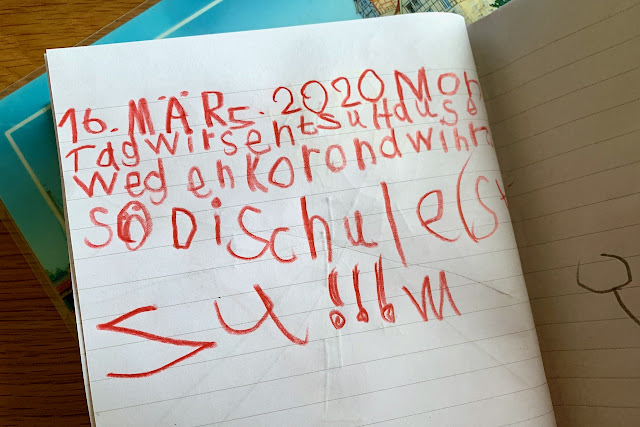 16. MÄRS. 2020 Mon
TAgwirsentsuHause
wegenkorondwihru
SO Dischule(Su
SU!!!m